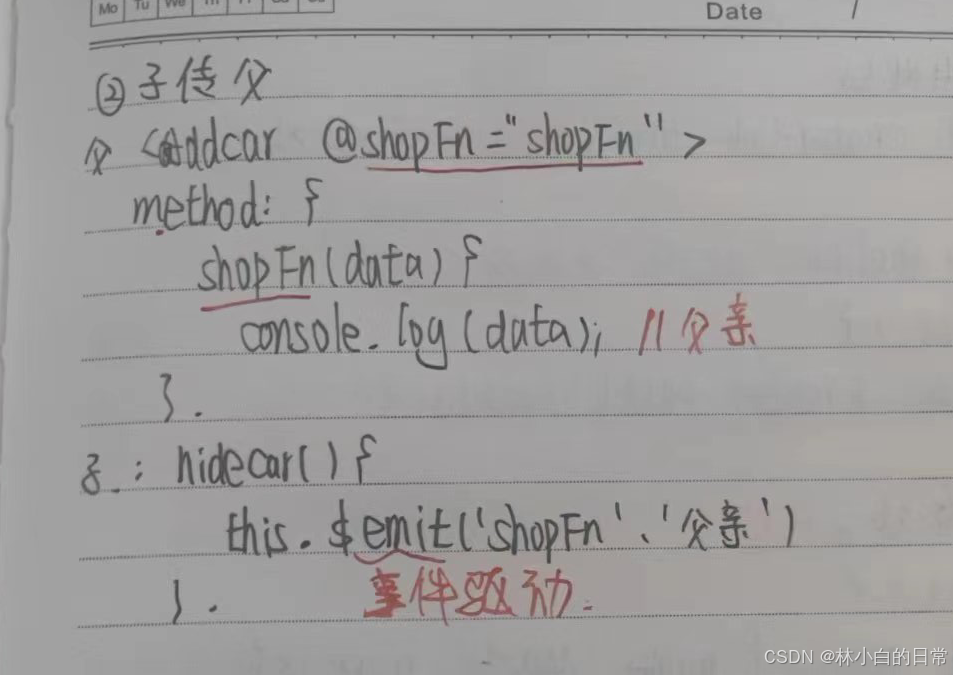 Mo Tu We Th Fr Sa Su
Date /
② 子传父
父 <addcar @shopFn="shopFn">
method: {
shopFn(data) {
console.log(data); //父亲
}.
子: hidecar() {
this.$emit('shopFn'、'父亲')
}. 事件驱动.
CSDN @林小白的日常